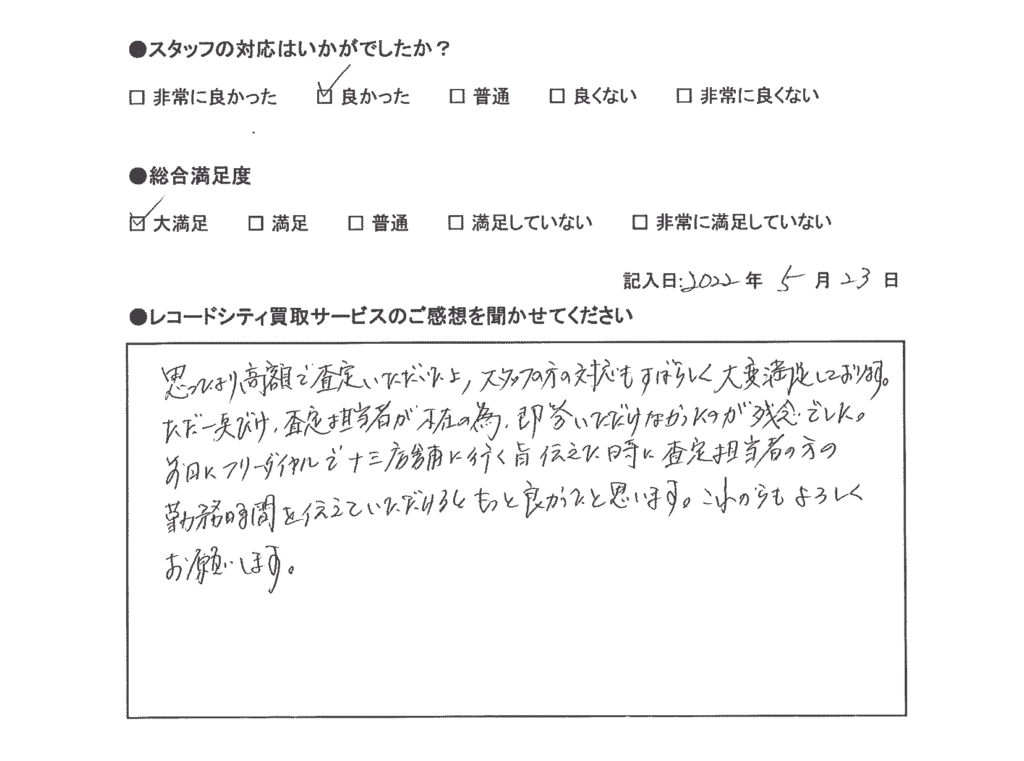 ●スタッフの対応はいかがでしたか？
□ 非常に良かった ☑ 良かった □ 普通 □ 良くない □ 非常に良くない
●総合満足度
☑ 大満足 □ 満足 □ 普通 □ 満足していない □ 非常に満足していない
記入日:2022 年 5 月 23 日
●レコードシティ買取サービスのご感想を聞かせてください
思ったより高額で査定いただいた上、スタッフの方の対応もすばらしく大変満足しております。
ただ一点だけ、査定担当者が不在の為、即答いただけなかったのが残念でした。
前日にフリーダイヤルで十三店舗に行く旨伝えた時に査定担当者の方の
勤務時間を伝えていただけるともっと良かったと思います。これからもよろしく
お願いします。